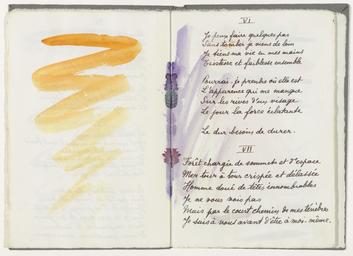 VI
Je peux faire quelques pas
Sans tomber je viens de loin
Je tiens ma vie en mes mains
Existence et faiblesse ensemble
Pourrai-je prendre où elle est
L'apparence qui me manque
Sur les rives d'un visage
Le jour la force éclatante
Le dur besoin de durer.
VII
Forêt chargée de sommets et d'espace
Mer tour à tour crispée et délassée
Homme doué de têtes innombrables
Je ne vous vois pas
Mais par le court chemin de mes ténèbres
Je suis à vous avant d'être à moi-même.